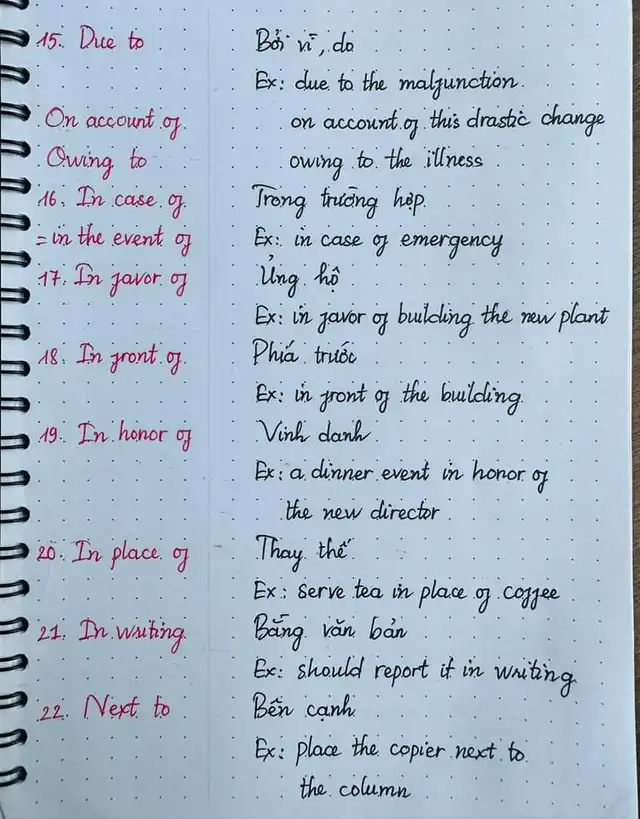 15. Due to Bởi vì, do
Ex: due to the malfunction
On account of on account of this drastic change
Owing to owing to the illness
16. In case of Trong trường hợp
= in the event of Ex: in case of emergency
17. In favor of Ủng hộ
Ex: in favor of building the new plant
18. In front of Phiá trước
Ex: in front of the building
19. In honor of Vinh danh
Ex: a dinner event in honor of
the new director
20. In place of Thay thế
Ex: serve tea in place of coffee
21. In writing Bằng văn bản
Ex: should report it in writing
22. Next to Bên cạnh
Ex: place the copier next to
the column